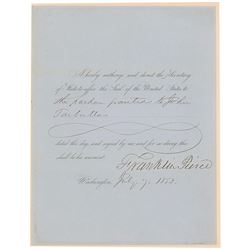 I hereby authorize and direct the Secretary
of State to affix the Seal of the United States to
the pardon granted to John
Tarbutton
dated this day, and signed by me and for so doing this
shall be his warrant.
Franklin Pierce
Washington, July 7, 1853.